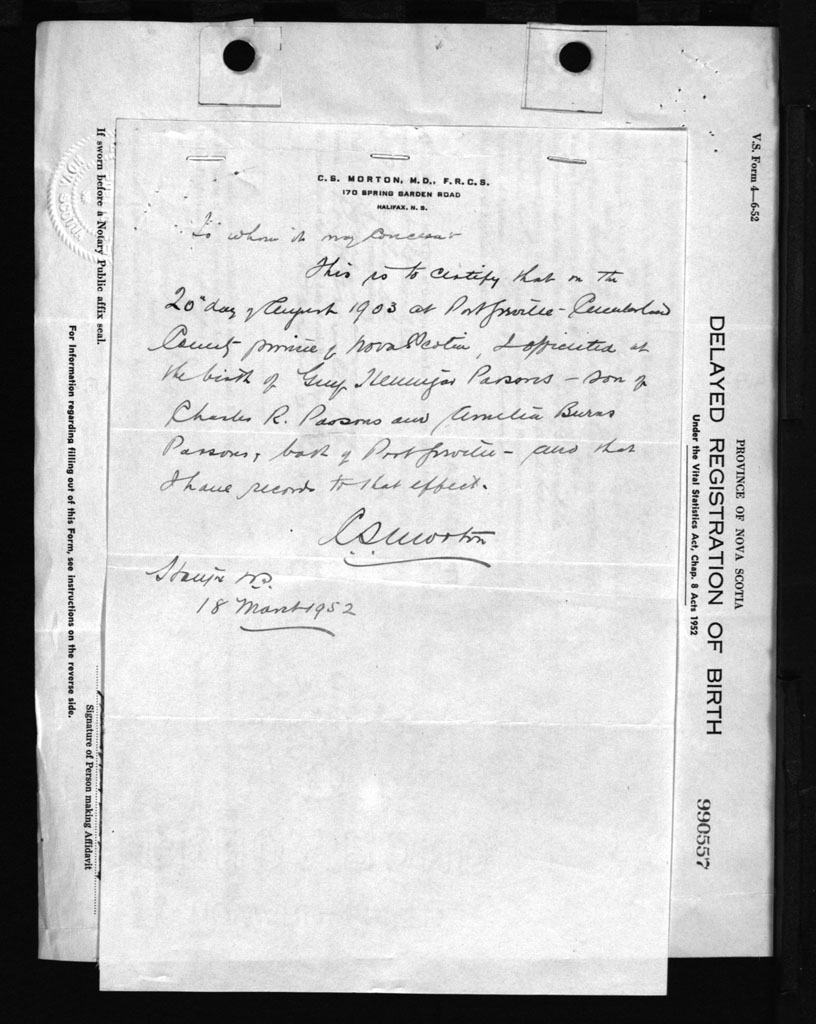 C. S. MORTON, M.D., F.R.C.S.
170 SPRING GARDEN ROAD
HALIFAX, N. S.
To whom it may Concern
This is to certify that on the
20" day of August 1903 at Port Greville - Cumberland
County province of Nova Scotia, I officiated at
the birth of Guy Parsons - son of
Charles R. Parsons and Amelia Burns
Parsons, both of Port Greville - and that
I have records to that effect.
C S Morton
Halifax N.S.
18 March 1952
V.S. Form 4—6-52
PROVINCE OF NOVA SCOTIA
DELAYED REGISTRATION OF BIRTH
Under the Vital Statistics Act, Chap. 8 Acts 1952
990557
If sworn before a Notary Public affix seal.
Signature of Person making Affidavit
For information regarding filling out of this Form, see instructions on the reverse side.
NOVA SCOTIA